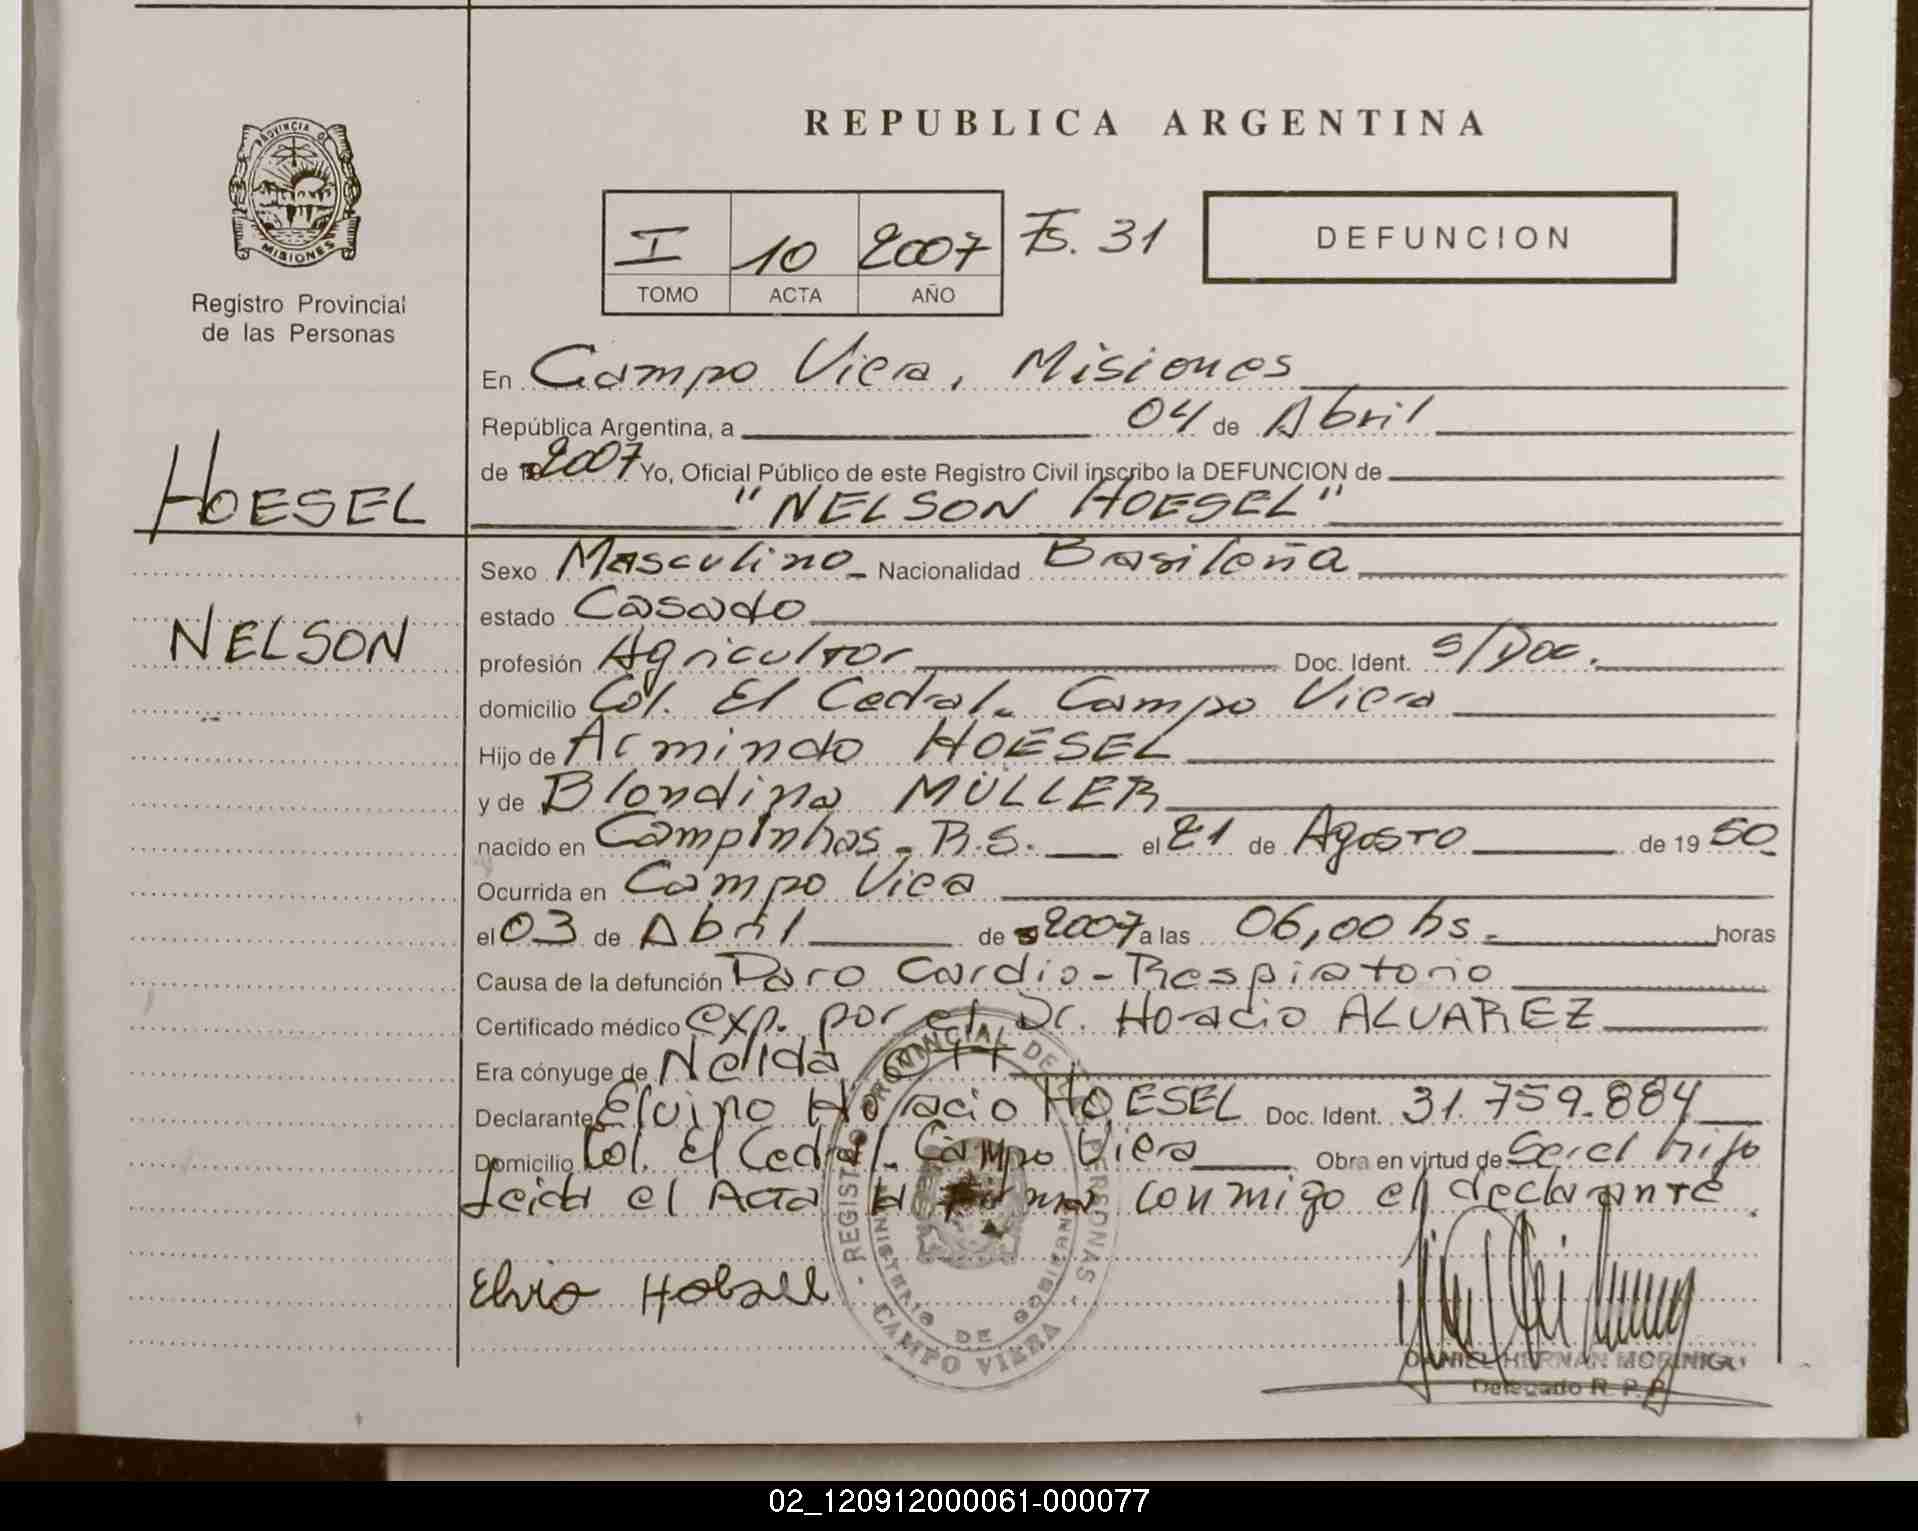 REPUBLICA ARGENTINA
PROVINCIA DE
MISIONES
Registro Provincial
de las Personas
I 10 2007 Fs. 31
TOMO ACTA AÑO
DEFUNCION
En Campo Viera, Misiones
República Argentina, a 04 de Abril
de 2007 Yo, Oficial Público de este Registro Civil inscribo la DEFUNCION de
HOESEL
"NELSON HOESEL"
Sexo Masculino Nacionalidad Brasileña
estado Casado
NELSON
profesión Agricultor Doc. Ident. s/Doc.
domicilio Col. El Cedral. Campo Viera
Hijo de Armindo HOESEL
y de Blondina MÜLLER
nacido en Campinhas - R.S. el 21 de Agosto de 1950
Ocurrida en Campo Viera
el 03 de Abril de 2007 a las 06,00 hs. horas
Causa de la defunción Paro Cardio-Respiratorio
Certificado médico exp. por el Dr. Horacio ALVAREZ
Era cónyuge de Nelida OTT
Declarante Elvino Horacio HOESEL Doc. Ident. 31.759.884
Domicilio Col. El Cedral. Campo Viera Obra en virtud de Ser el hijo
Leida el Acta la firma conmigo el declarante.
REGISTRO PROVINCIAL DE LAS PERSONAS
MINISTERIO DE GOBIERNO
CAMPO VIERA
DANIEL HERNAN MORINIGO
Delegado R. P. P.
02_120912000061-000077